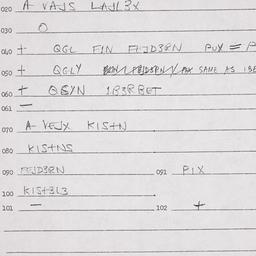 020 A VAJS LAJL3X
030 O
040 + QGL FIN FEJD3RN PUX = P
050 + QGLY SAME AS 1B
060 + QGYN 1B3RBET
061 —
070 A VEJX KIS+N
080 KIS+NS
090 FEJD3RN 091 PIX
100 KIS+3L3
101 — 102 +